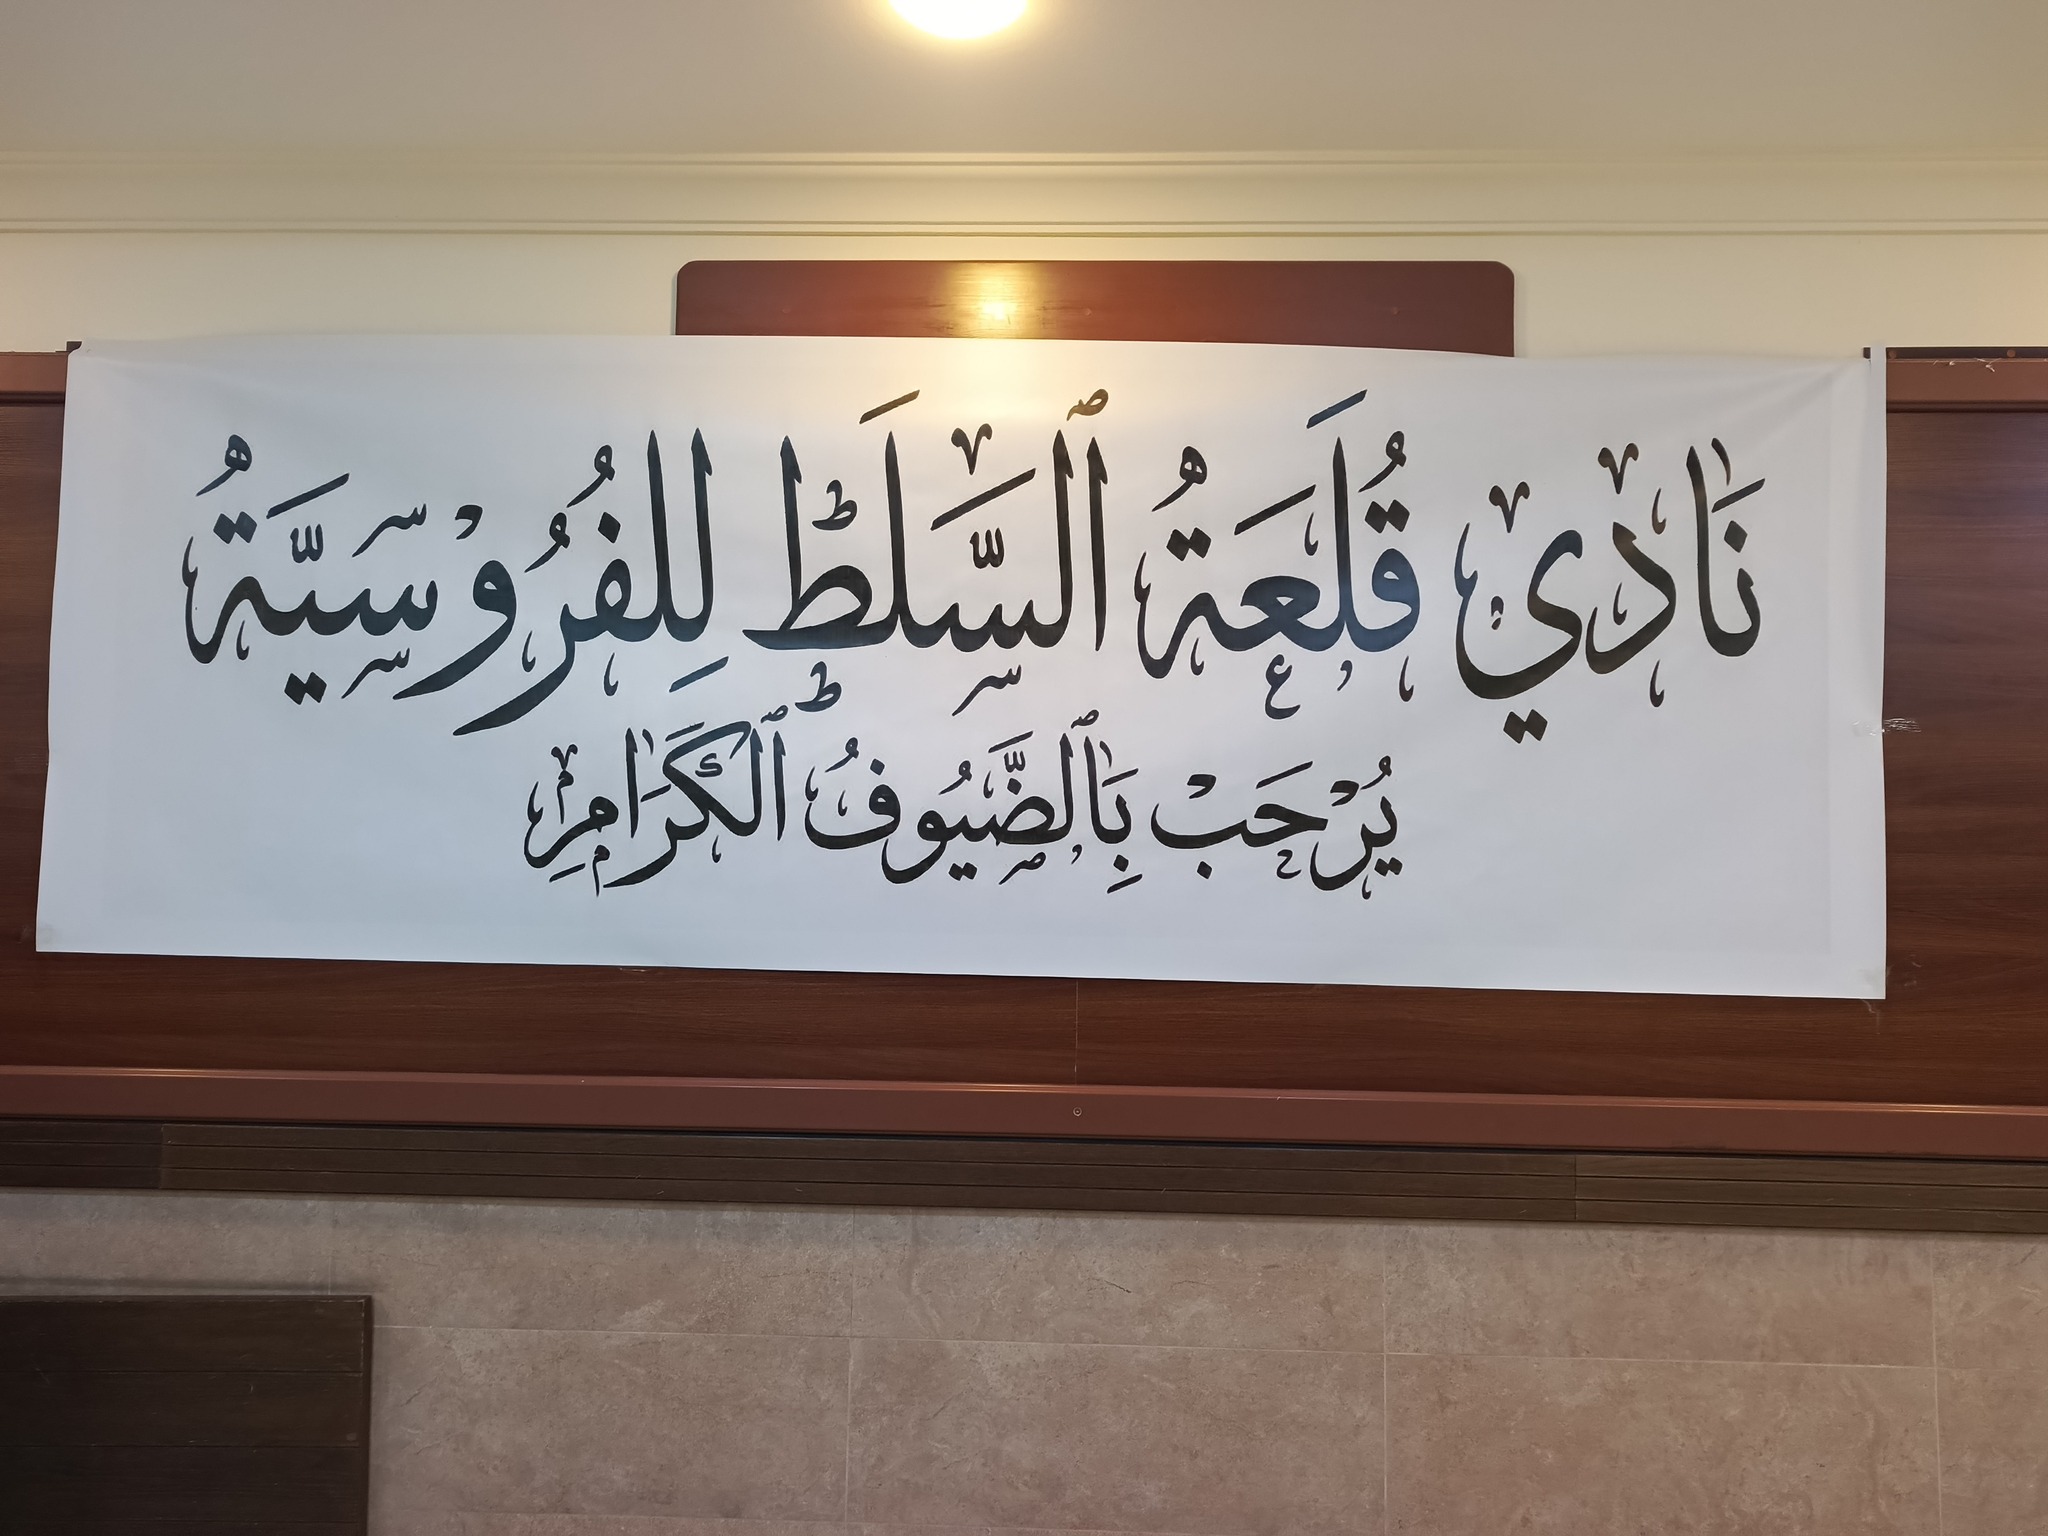 نَادِي قُلَعَةُ ٱلسَّلَطْ لِلفُرُوْسِيَّةُ
يُرْحَبْ بِٱلضَّيُوفُ ٱلكَرَامِ